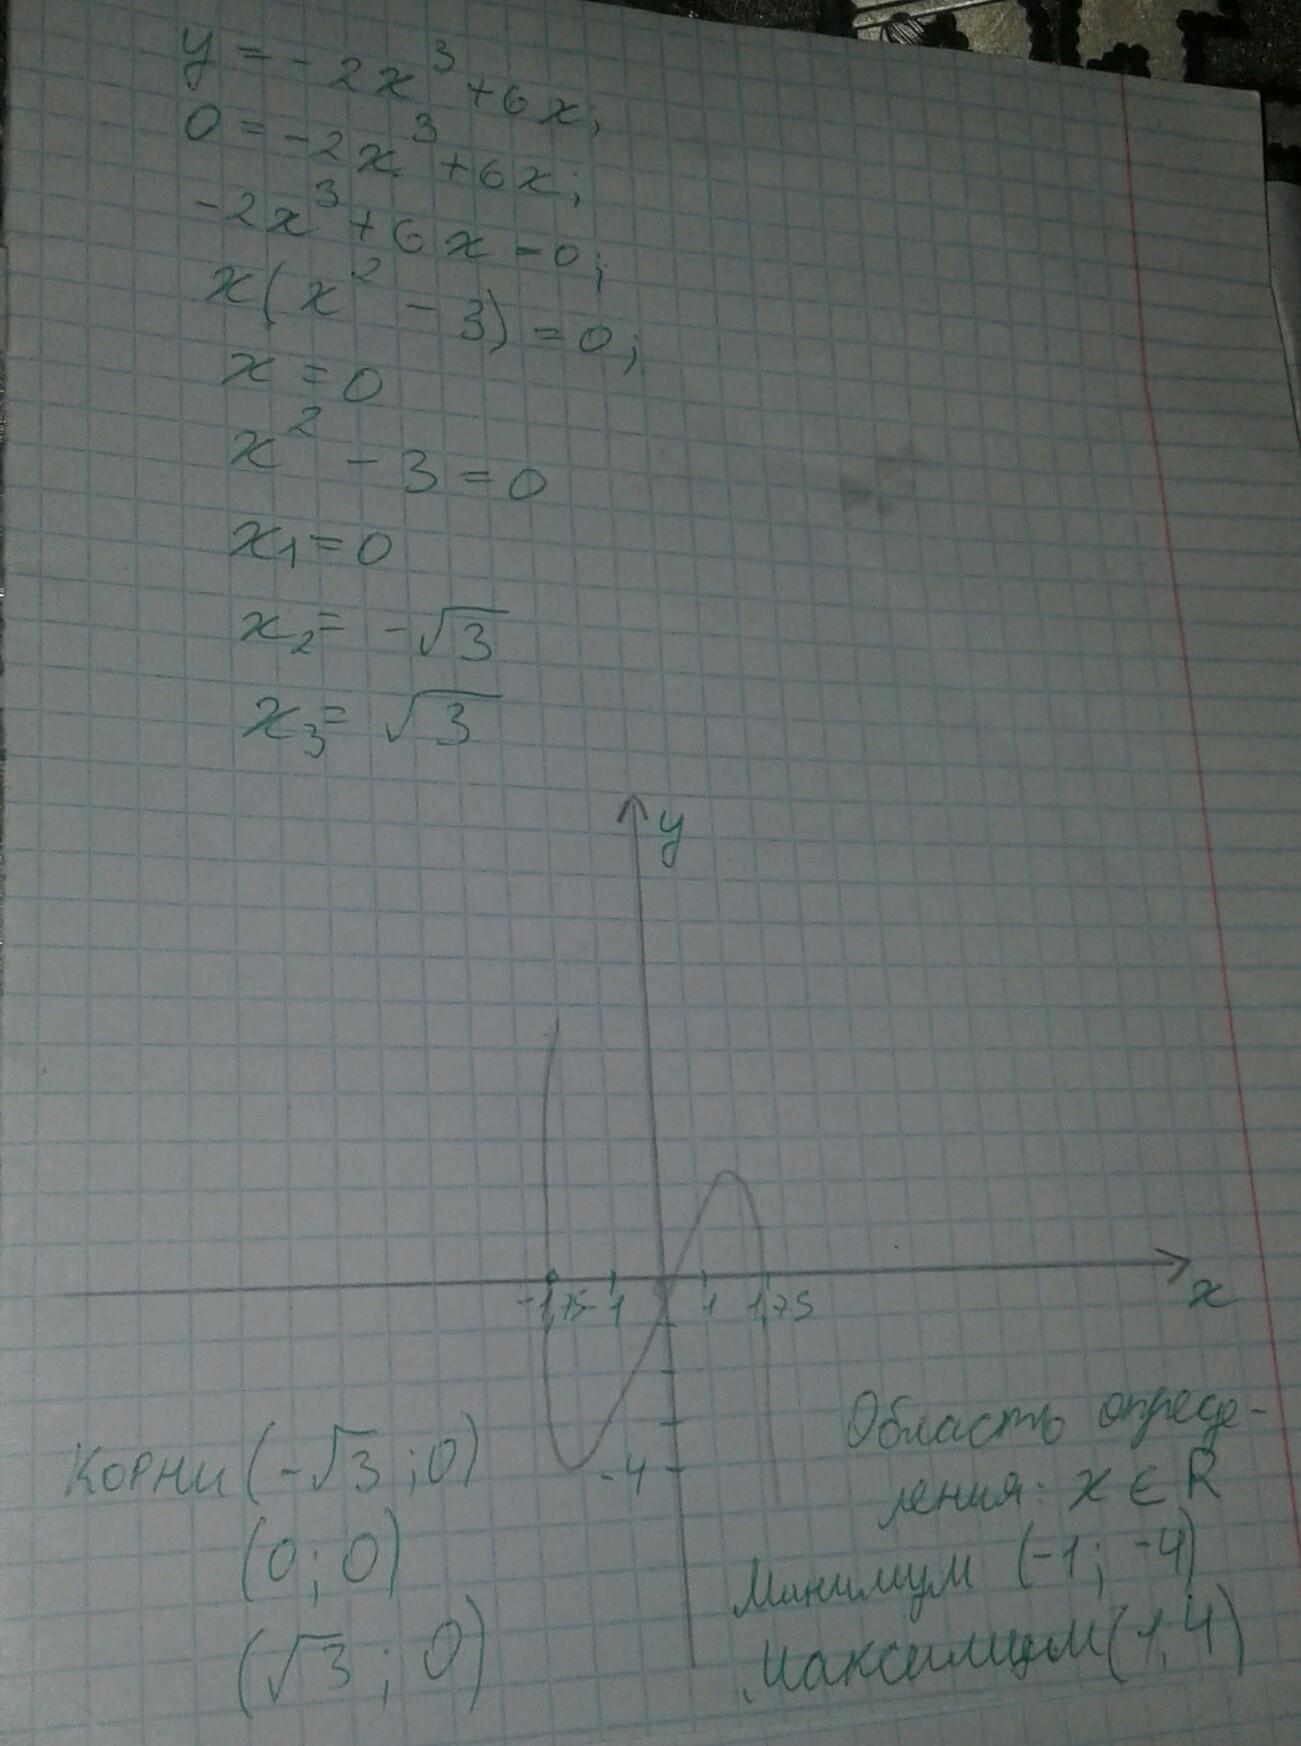 y = -2x³ + 6x;
0 = -2x³ + 6x;
-2x³ + 6x = 0;
x(x² - 3) = 0;
x = 0
x² - 3 = 0
x₁ = 0
x₂ = -√3
x₃ = √3
y
-1,75 -1 1 1,75
x
-4
Корни (-√3; 0)
(0; 0)
(√3; 0)
Область опреде-
ления: x ∈ R
Минимум (-1; -4)
Максимум (1; 4)